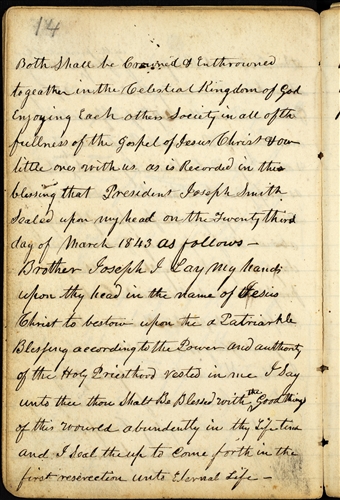 14
Both Shall be Crowned & Enthrowned
togeather in the Celestial Kingdom of God
Enjoying Each others Society in all of the
fullness of the Gospel of Jesus Christ & our
little ones with us as is Recorded in this
blessing that President Joseph Smith
Sealed upon my head on the Twenty third
day of March 1843 as follows—
Brother Joseph I Lay my hands
upon thy head in the name of Jesus
Christ to bestow upon the a Patriarkle
Blessing according to the Power and authority
of the Holy Priesthood vested in me I Say
unto thee thou Shalt Be Blessed with the Good things
of this wourld abundently in thy Life time
and I Seal the up to Come forth in the
first reserection unto Eternal Life—